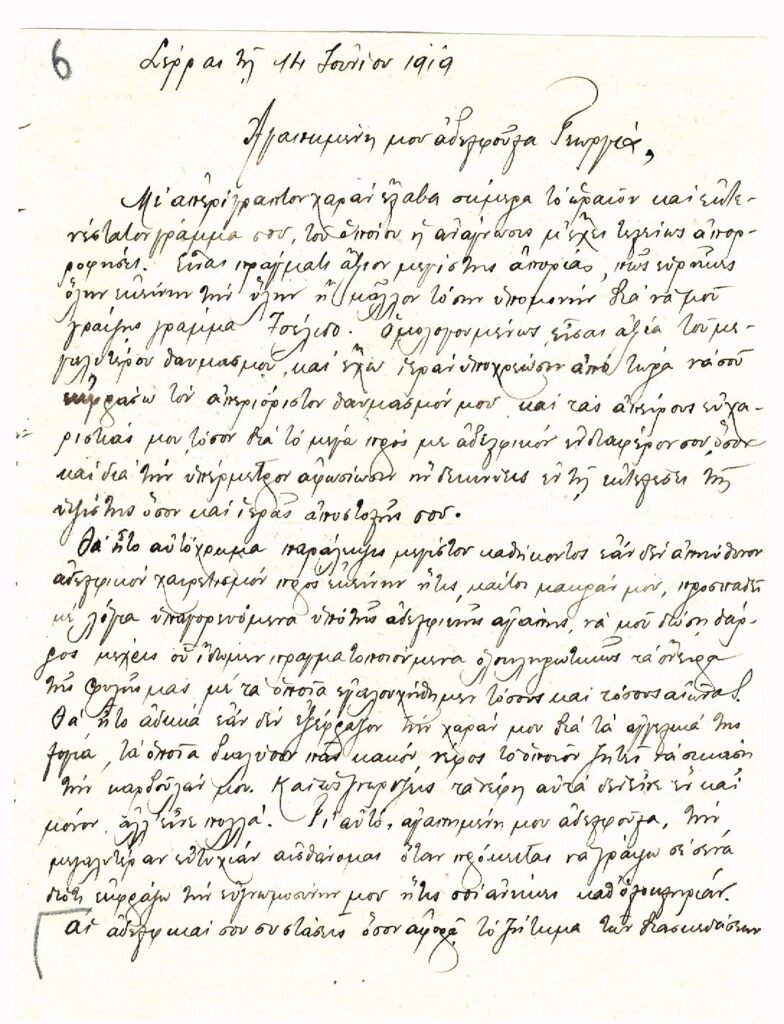 6
Σέρραι τῇ 14 Ἰουνίου 1919
Ἀγαπημένη μου ἀδελφοῦλα Γεωργία,
Μὲ ἀπερίγραπτον χαρὰν ἔλαβα σήμερα τὸ ὡραῖον καὶ ἐκτε-
νέστατον γράμμα σου, τοῦ ὁποίου ἡ ἀνάγνωσις μ' ἔχει τελείως ἀπορ-
ροφήσει. Εἶναι πράγματι ἄξιον μεγίστης ἀπορίας, πῶς εὑρῆκες
ὅλην ἐκείνην τὴν ὕλην ἢ μᾶλλον τόσην ὑπομονὴν διὰ νὰ μοῦ
γράψῃς γράμμα 7σέλιδο. Ὁμολογουμένως εἶσαι ἀξία τοῦ με-
γαλυτέρου θαυμασμοῦ, καὶ ἔχω ἱερὰν ὑποχρέωσιν ἀπὸ τώρα νὰ σοῦ
ἐκφράσω τὸν ἀπεριόριστον θαυμασμόν μου καὶ τὰς ἀπείρους εὐχα-
ριστίας μου, τόσον διὰ τὸ μέγα πρός με ἀδελφικὸν ἐνδιαφέρον σου, ὅσον
καὶ διὰ τὴν ὑπέρμετρον ἀφοσίωσιν ἣν δεικνύεις ἐν τῇ ἐκτελέσει τῆς
ὑψίστης ὅσον καὶ ἱερᾶς ἀποστολῆς σου.
Θὰ ἦτο αὐτόχρημα παράλειψις μεγίστου καθήκοντος ἐὰν δὲν ἀπηύθυνον
ἀδελφικὸν χαιρετισμὸν πρὸς ἐκείνην ἥτις, καίτοι μακράν μου, προσπαθεῖ
μὲ λόγια ὑπαγορευόμενα ὑπὸ τῆς ἀδελφικῆς ἀγάπης, νὰ μοῦ δώσῃ θάρ-
ρος μέχρις οὗ ἴδωμεν πραγματοποιούμενα ὁλοκληρωτικῶς τὰ ὄνειρα
τῆς φυλῆς μας μὲ τὰ ὁποῖα ἐγαλουχήθημεν τόσους καὶ τόσους αἰῶνας.
Θὰ ἦτο ἄδικα ἐὰν δὲν ἐξέφραζον τὴν χαράν μου διὰ τὰ ἀγγελικά της
λόγια, τὰ ὁποῖα διαλύουν πᾶν κακὸν νέφος τὸ ὁποῖον ζητεῖ νὰ σκιάσῃ
τὴν καρδούλαν μου. τὰ νέφη αὐτὰ δὲν εἶνε ἓν καὶ
μόνον, ἀλλ' εἶνε πολλά. Γι' αὐτό, ἀγαπημένη μου ἀδελφοῦλα, τὴν
μεγαλυτέραν εὐτυχίαν αἰσθάνομαι ὅταν πρόκειται νὰ γράψω σὲ σένα
διότι ἐκφράζω τὴν εὐγνωμοσύνην μου ἥτις σοῦ ἀνήκει καθ' ὁλοκληρίαν.
Αἱ ἀδελφικαί σου συστάσεις ὅσον ἀφορᾷ τὸ ζήτημα τῶν διασκεδάσεων